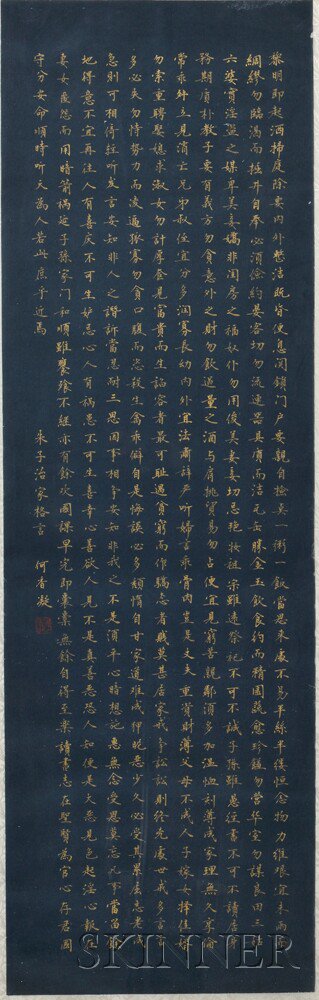 黎明即起洒掃庭除要内外整洁既昏便息関鎖门户要親自檢点一粥一飯當思来處不易半絲半縷恒念物力维艱宜未雨而
綢繆勿臨渴而掘井自奉必須儉約宴客切勿流連器具質而洁瓦缶勝金玉飲食約而精園蔬愈珍饈勿營华室勿謀良田三姑
六婆實淫盜之媒婢美妾嬌非闺房之福奴仆勿用俊美妻妾切忌艳妝祖宗雖遠祭祀不可不誠子孫雖愚經書不可不讀居身
務期質朴教子要有義方勿貪意外之財勿飲過量之酒与肩挑貿易勿占便宜見窮苦親鄰須多加温恤刻薄成家理無久享倫
常乖舛立見消亡兄弟叔侄宜分多潤寡長幼内外宜法肅辞严听婦言乖骨肉豈是丈夫重資財薄父母不成人子嫁女擇佳婿
勿索重聘娶媳求淑女勿計厚奩見富貴而生諂容者最可耻遇貧窮而作驕态者賤莫甚居家戒爭訟訟則終凶處世戒多言言
多必失勿恃势力而凌逼孤寡勿貪口腹而恣殺生禽乖僻自是悔誤必多頽惰自甘家道難成狎昵惡少久必受其累屈志老成
急則可相倚輕听发言安知非人之譖訴當忍耐三思因事相爭安知非我之不是須平心暗想施惠無念受恩莫忘凡事當留餘
地得意不宜再往人有喜庆不可生妒忌心人有禍患不可生喜幸心善欲人見不是真善惡恐人知便是大惡見色起淫心報在
妻女匿怨而用暗箭禍延子孫家门和順雖饔飧不継亦有餘欢國課早完即囊橐無餘自得至樂讀書志在聖賢為官心存君國
守分安命順時听天為人若此庶乎近焉
朱子治家格言 何香凝
SKINNER